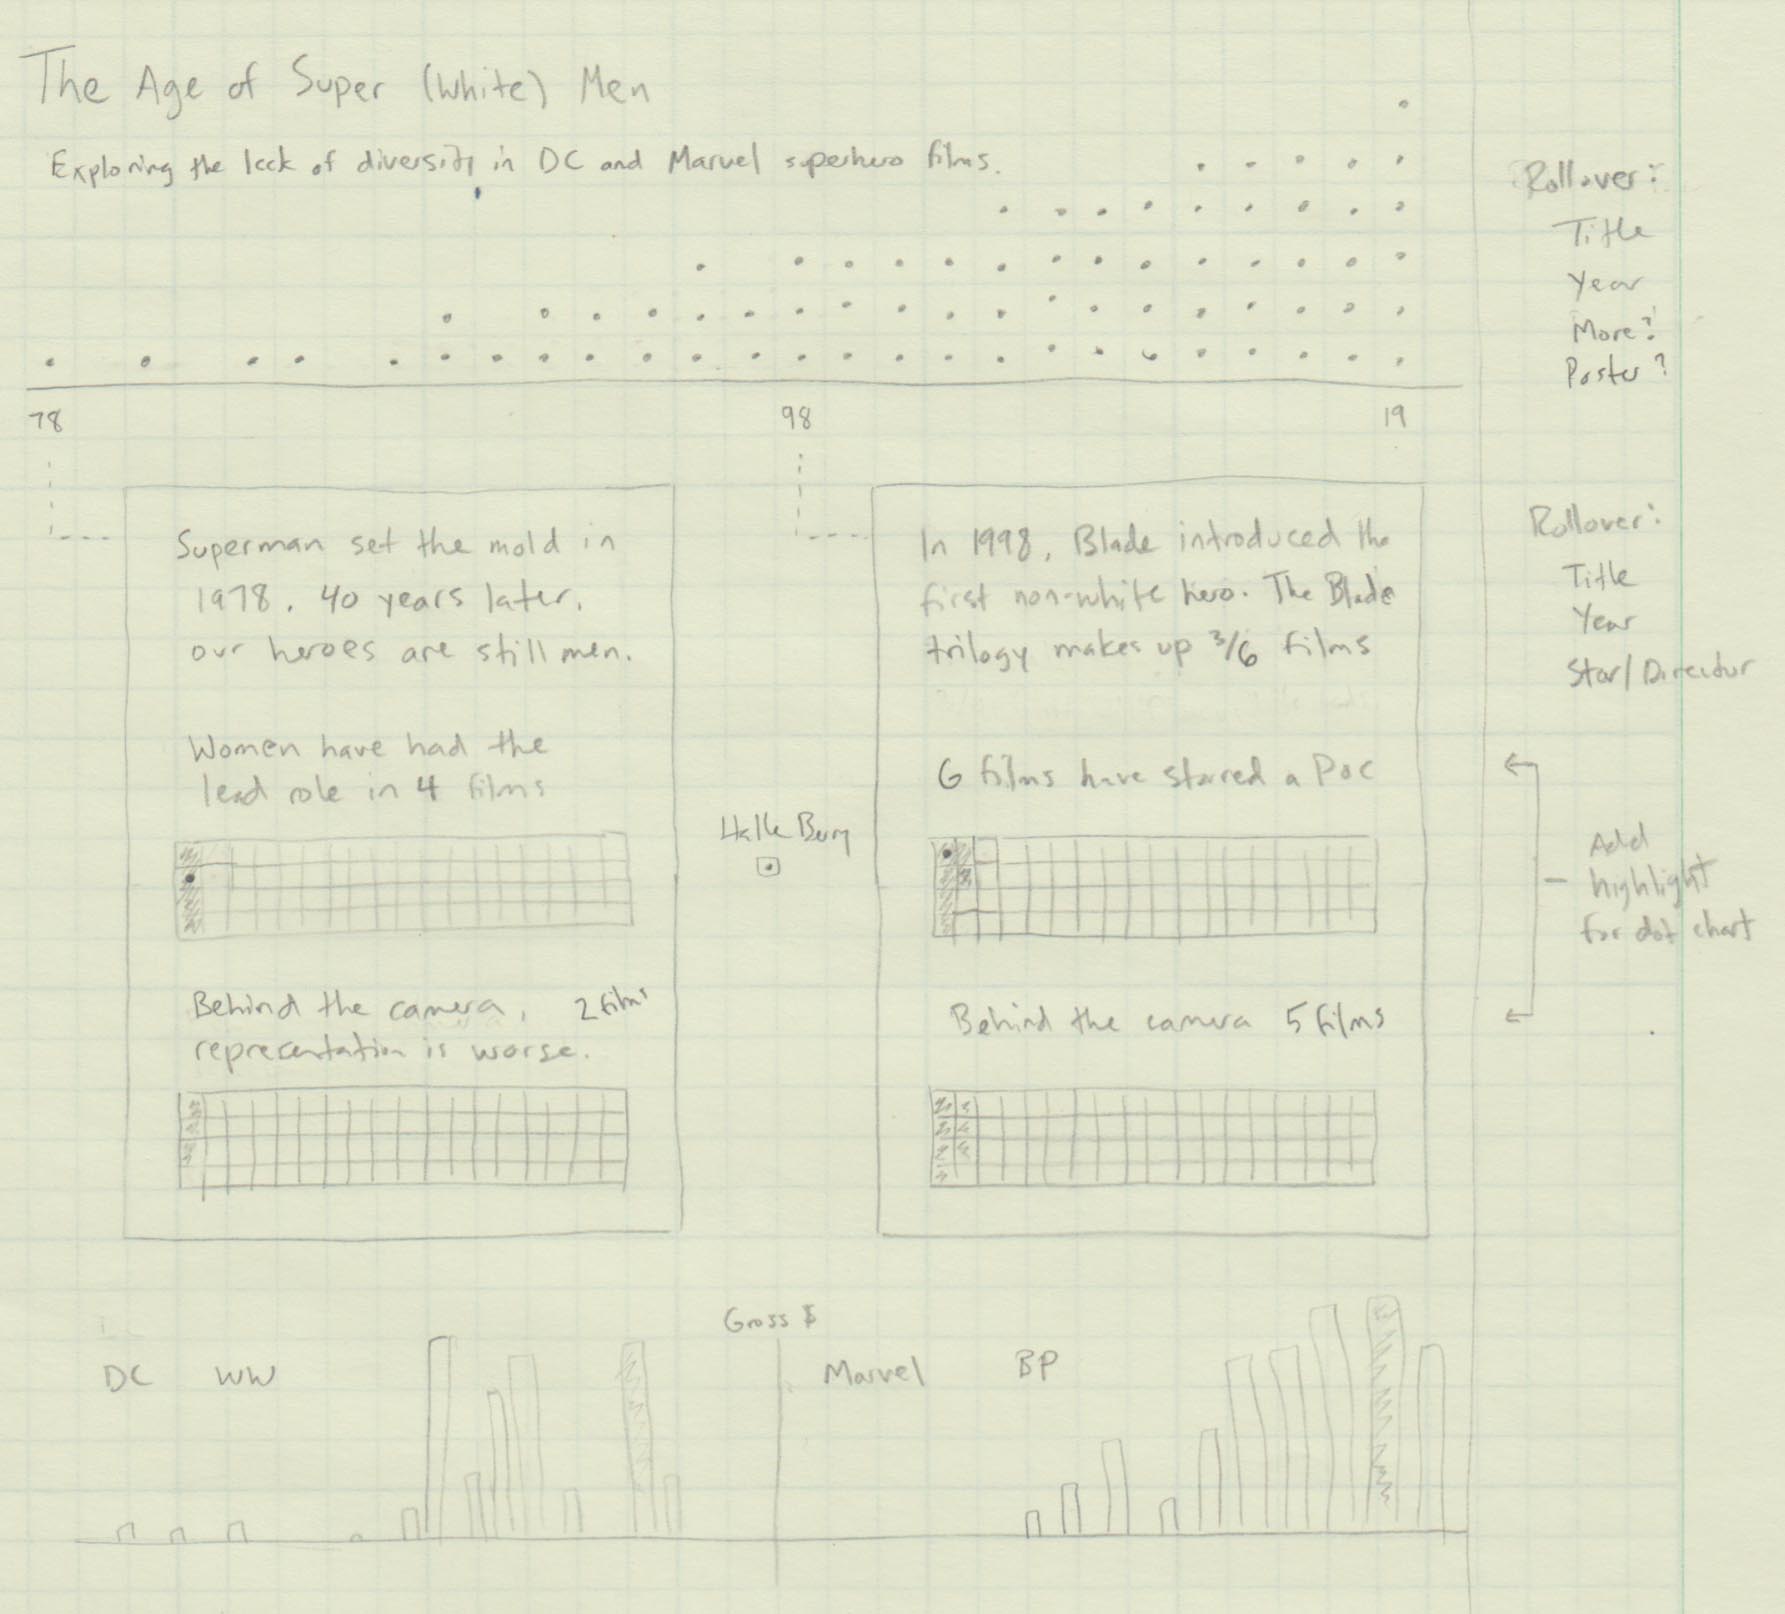 The Age of Super (White) Men
Exploring the lack of diversity in DC and Marvel superhero films.
Rollover:
Title
Year
More?
Poster?
78
98
19
Superman set the mold in
1978. 40 years later,
our heroes are still men.
Women have had the
lead role in 4 films
Behind the camera, 2 films
representation is worse.
Halle Berry
In 1998, Blade introduced the
first non-white hero. The Blade
trilogy makes up 3/6 films
6 films have starred a PoC
Behind the camera 5 films
Rollover:
Title
Year
Star/Director
Add
highlight
for dot chart
Gross $
DC WW
Marvel BP